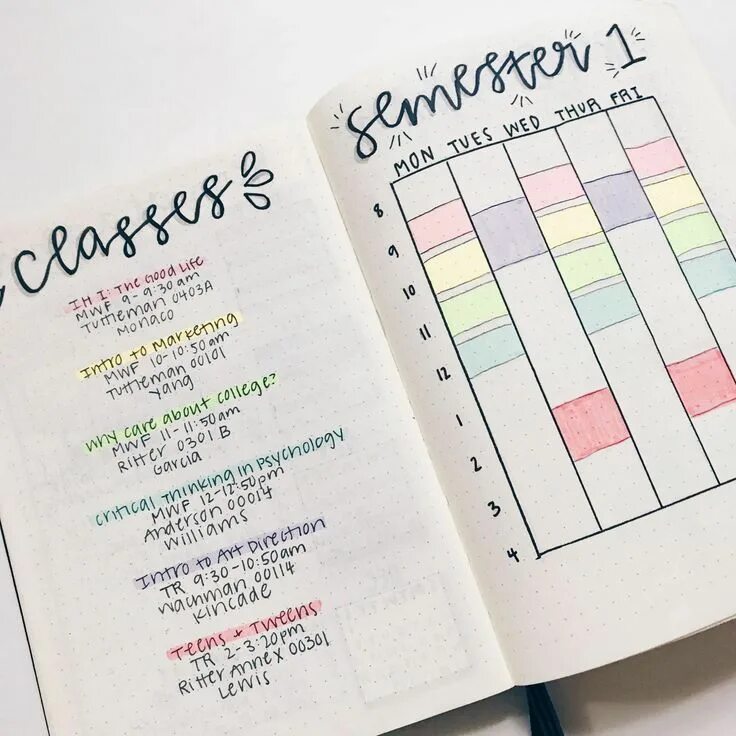 classes
IH I: The Good Life
MWF 9-9:30am
Tuttleman 0403A
Monaco
Intro to Marketing
MWF 10-10:50am
Tuttleman 00101
Yang
Why care about college?
MWF 11-11:50am
Ritter 0301 B
Garcia
Critical Thinking in Psychology
MWF 12-12:50pm
Anderson 00014
Williams
Intro to Art Direction
TR 9:30-10:50am
Wachman 00114
Kincade
Teens + Tweens
TR 2-3:20pm
Ritter Annex 00301
Lewis
semester 1
MON TUES WED THUR FRI
8
9
10
11
12
1
2
3
4